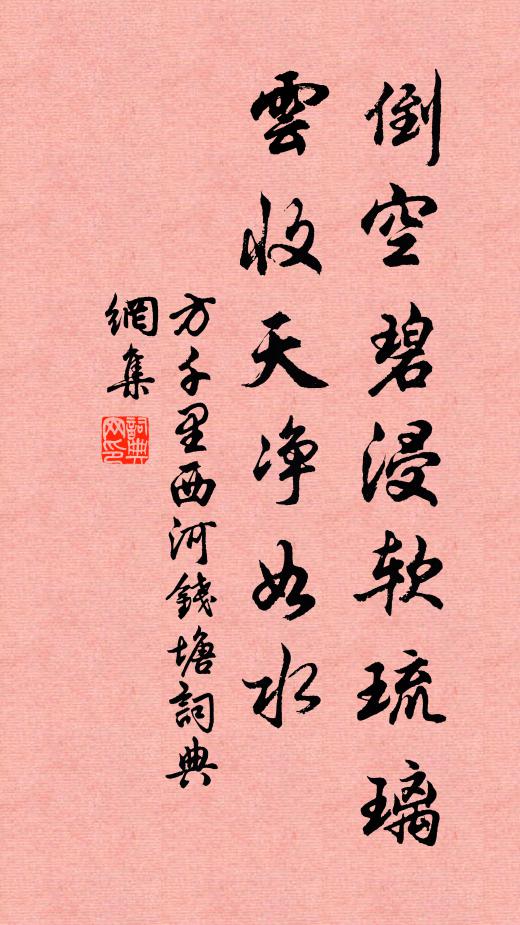 倒空碧浸软琉璃
雲收天净如水
方千里西河錢塘詞典
網集
詞典
网印